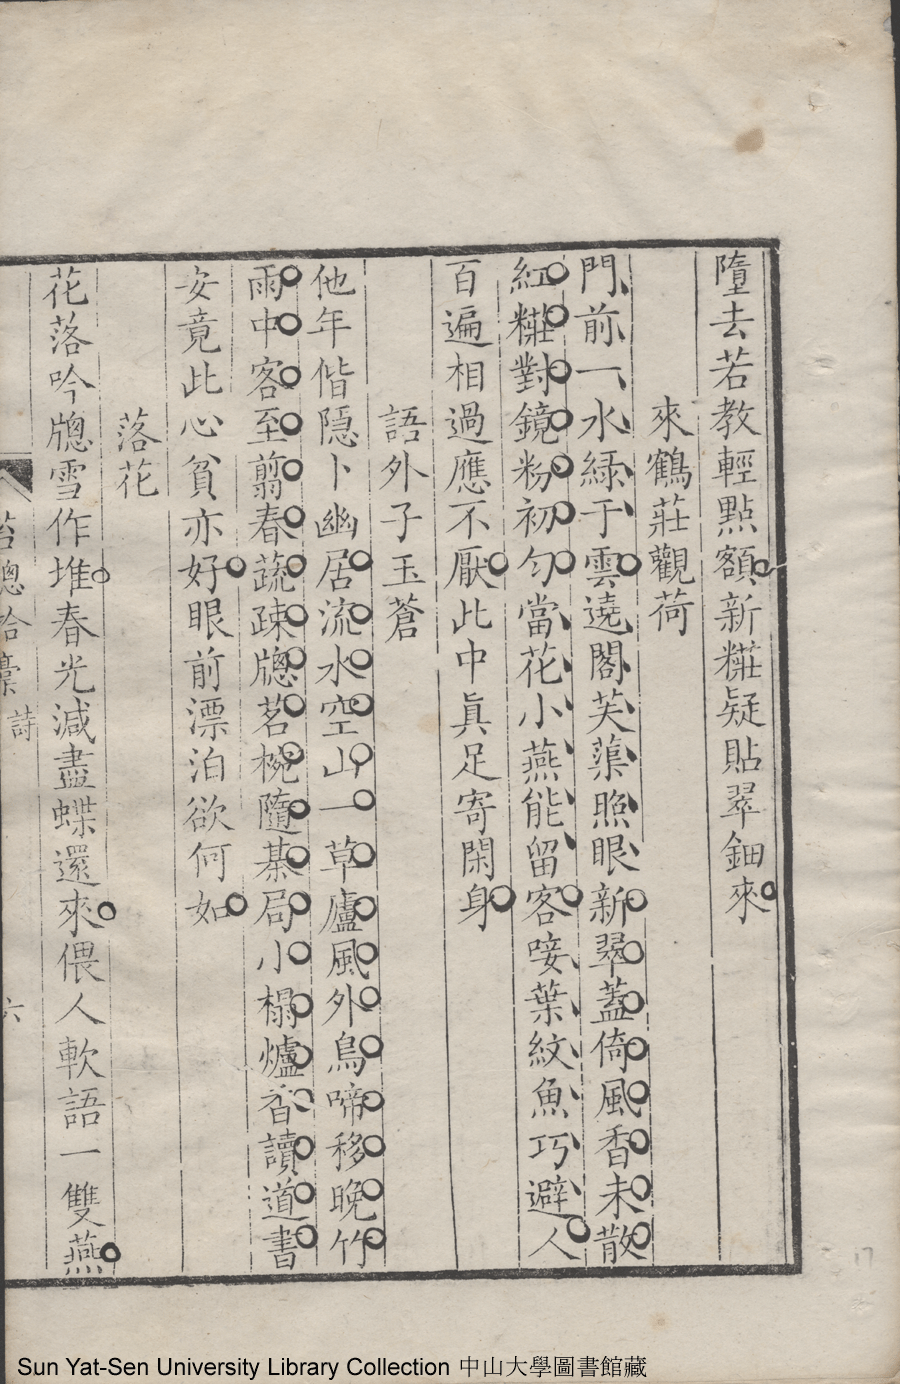 墮去若教輕點額新糚疑貼翠鈿來
來鶴莊觀荷
門前一水綠于雲遶閣芙蕖照眼新翠蓋倚風香未散
紅糚對鏡粉初勻當花小燕能留客唼葉紋魚巧避人
百遍相過應不厭此中眞足寄閑身
語外子玉蒼
他年偕隱卜幽居流水空山一草廬風外鳥啼移晚竹
雨中客至翦春蔬疎牕茗椀隨棊局小榻爐香讀道書
安竟此心貧亦好眼前漂泊欲何如
落花
花落吟牕雪作堆春光減盡蝶還來偎人軟語一雙燕
詩
六
Sun Yat-Sen University Library Collection 中山大學圖書館藏
17